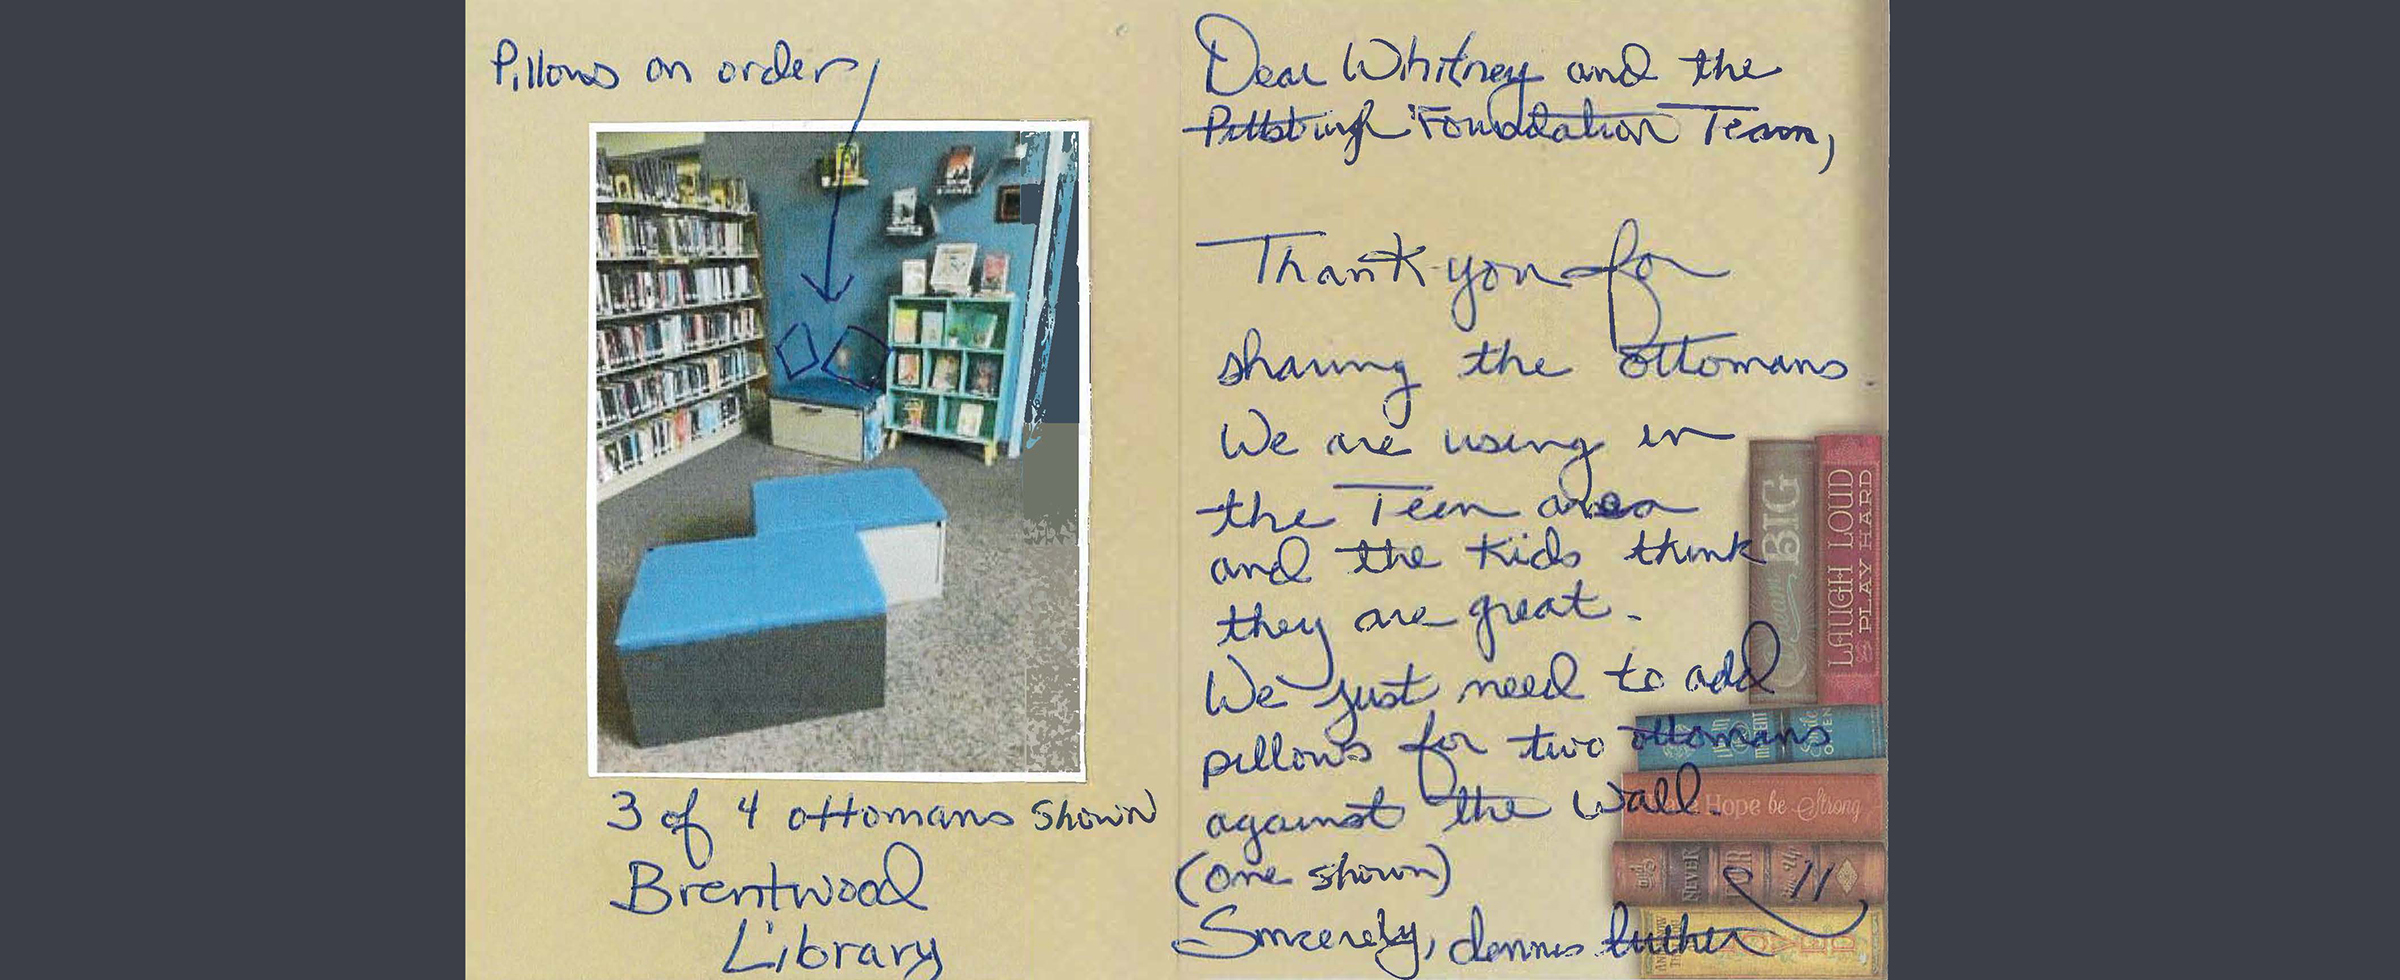 Pillows on order
3 of 4 ottomans shown
Brentwood
Library
Dear Whitney and the
Pittsburgh Foundation Team,
Thank you for
sharing the ottomans.
We are using in
the Teen area
and the kids think
they are great.
We just need to add
pillows for two ottomans
against the wall.
(one shown)
Sincerely, dennis luther
Dream BIG
LAUGH LOUD
PLAY HARD
Hope be Strong
NEVER